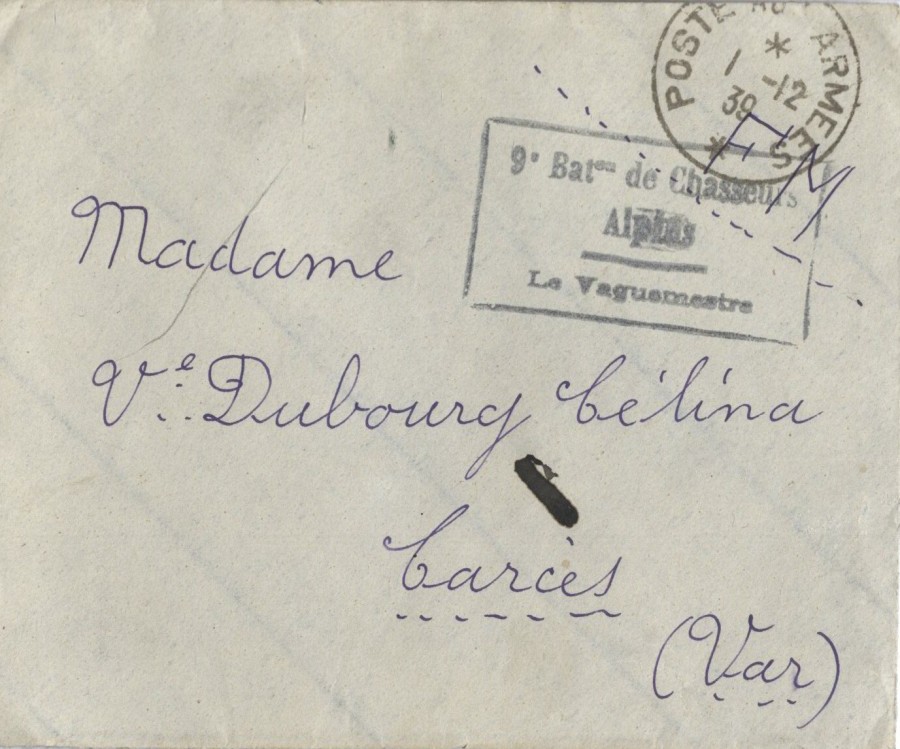 POSTE AUX ARMEES
* 1-12 39 *
F.M
9e Baton de Chasseurs
Alpins
Le Vaguemestre
Madame
Ve Dubourg Célina
Carcès
(Var)